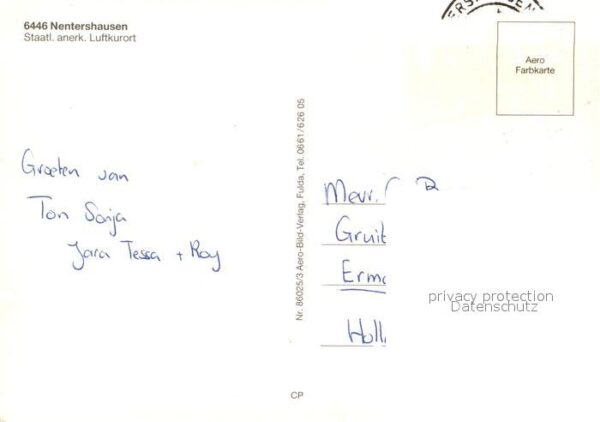 6446 Nentershausen
Staatl. anerk. Luftkurort
Aero
Farbkarte
Groeten van
Ton Sonja
Jara Tessa + Roy
Nr. 86025/3 Aero-Bild-Verlag, Fulda, Tel. 0661/626 05
Mevr.
Gruit
Erm
Holl
privacy protection
Datenschutz
CP